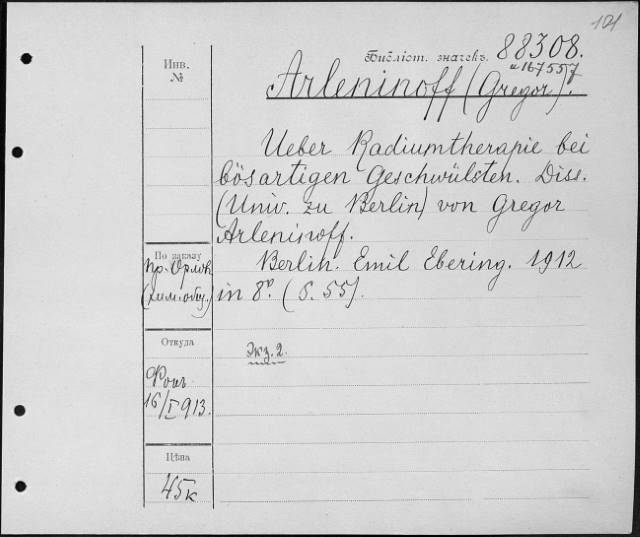 121
Инв.
№
Библіот. значекъ. 88308.
и 167557
Arleninoff (Gregor).
Ueber Radiumtherapie bei
bösartigen Geschwülsten. Diss.
(Univ. zu Berlin) von Gregor
Arleninoff.
Berlin. Emil Ebering. 1912
in 8º. (S. 55).
По заказу
пр. Орлов
Откуда
Экз. 2.
Фокъ
16/I 913.
Цѣна
45к